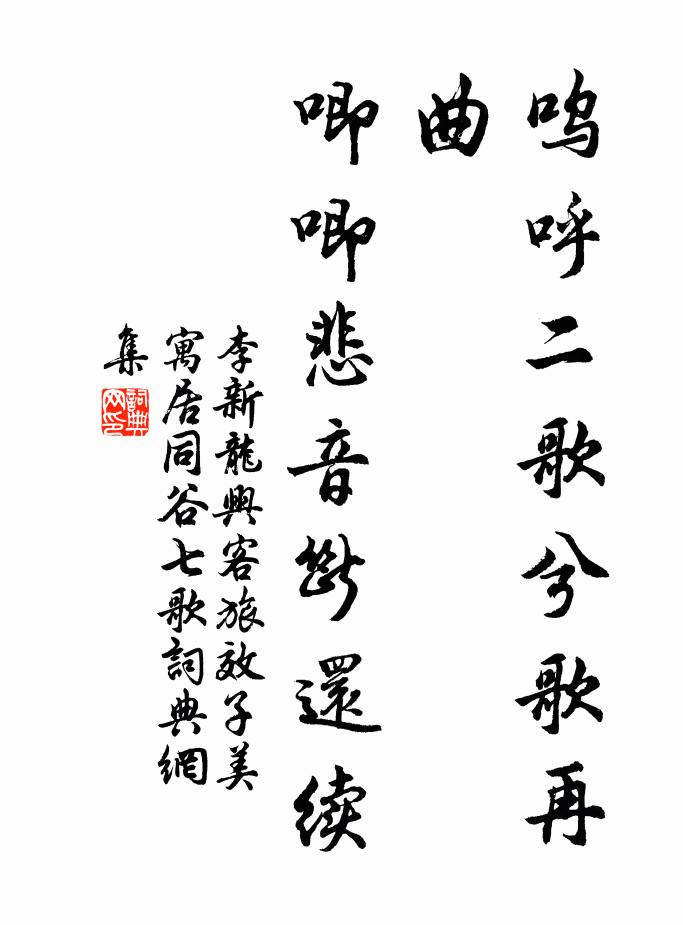 呜呼二歌兮歌再
曲
唧唧悲音断還续
李新龍興客旅效子美
寓居同谷七歌詞典網
集
詞典
网印